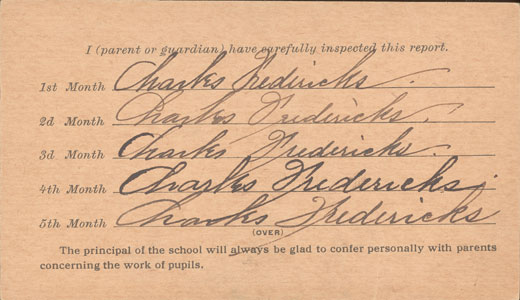 I (parent or guardian) have carefully inspected this report.
1st Month Charles Fredericks.
2d Month Charles Fredericks.
3d Month Charles Fredericks.
4th Month Charles Fredericks.
5th Month Charles Fredericks
(OVER)
The principal of the school will always be glad to confer personally with parents
concerning the work of pupils.